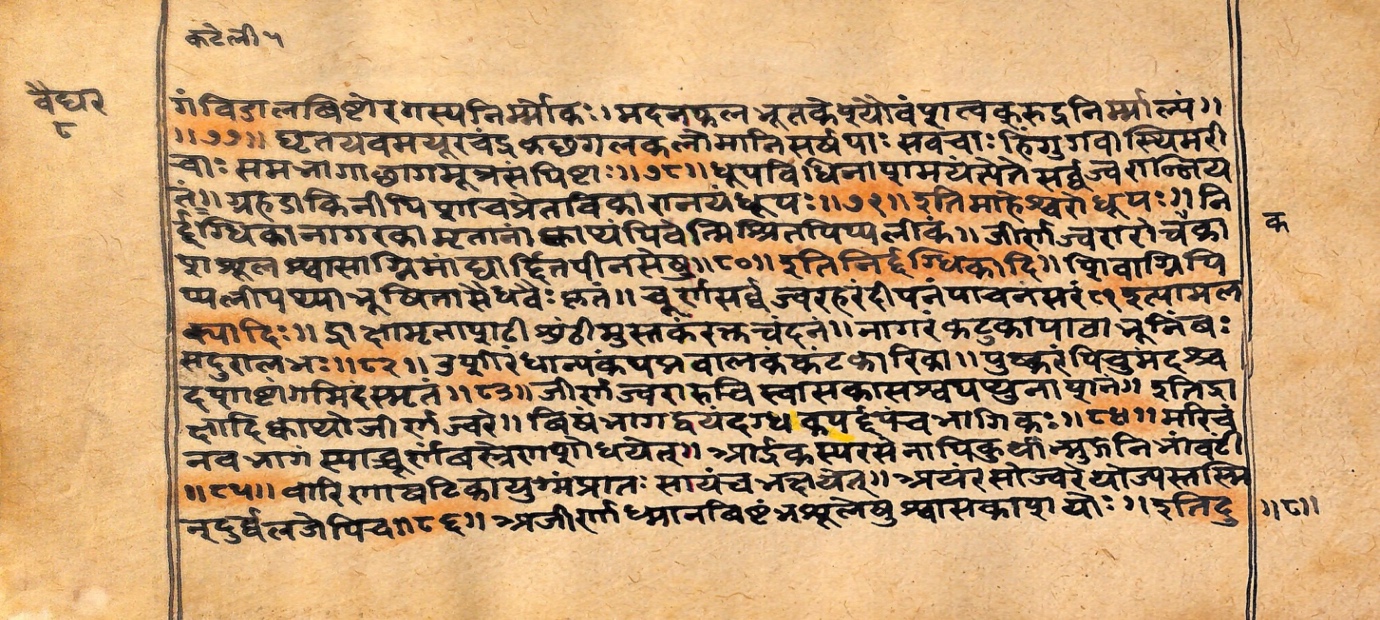 कटेली ५
वैद्यर
८
गं विडालबिष्टोरगस्यनिर्म्मोकः। मदनफल भूतकेप्र्यौवंपात्वक् रुद्रनिर्म्माल्यं॥
॥७७॥ घृतयवमयूरचंद्रकछगलकलोमानिसर्षपाः सवचाः हिंगुगवास्थिमरी
चाः समभागाछागमूत्रसंपिष्टाः॥७८॥ धूपविधिनाशमयंत्येतेसर्व्वज्वरान्निय
तं॥ ग्रहडाकिनीपिशाचप्रेतविकारानयंधूपः॥७९॥ इतिमाहेश्वरोधूपः॥ नि
र्द्दग्धिकानागरकामृतानांक्वाथंपिवेन्मिश्रितपिप्पलीकं॥ जीर्णज्वरारोचैका
शशूलश्वासाग्निमांद्यार्द्दितपीनसेषु॥८०॥ इतिनिर्द्दग्धिकादि॥ शिवाग्निपि
प्पलीपथ्याभूषितासैधवैः कृतं॥ चूर्णसर्व्वज्वरहरंदीपनंपाचनंसरं ८१ इत्यामल
क्यादिः॥ द्राक्षामृताशटीशुंठीमुस्तकंरक्तचंदनं॥ नागरंकटुकापाठाभूनिंबः
सदुरालभः॥८२॥ उशीरंधान्यकंपद्मवालकंकंटकारिका॥ पुष्करंपिचुमदश्च
दशाष्टांगमिदंस्मृतं॥८३॥ जीर्णज्वरारुचिस्वासकासश्वपथ्युनाशनं॥ इतिद्रा
क्षादिक्वाथोजीर्णज्वरे॥ बिषंभागद्वयंदग्धकपर्द्दपंचभागिकः॥८४॥ मरिचं
नवभागंस्याच्चूर्णवस्त्रेणशोधयेत्॥ आर्द्रकस्यरसेनापिकुर्यान्मुद्गनिभांवटी
॥८५॥ वारिणावटिकायुग्मंप्रातः सायंचभक्षयेत्॥ अयंरसोज्वरेयोज्यस्तस्मि
न्दुर्ब्बलजेपिच॥८६॥ अजीर्णाध्मानबिष्टंभशूलेषुश्वासकाशयोः॥ इतिदु
क
॥८॥